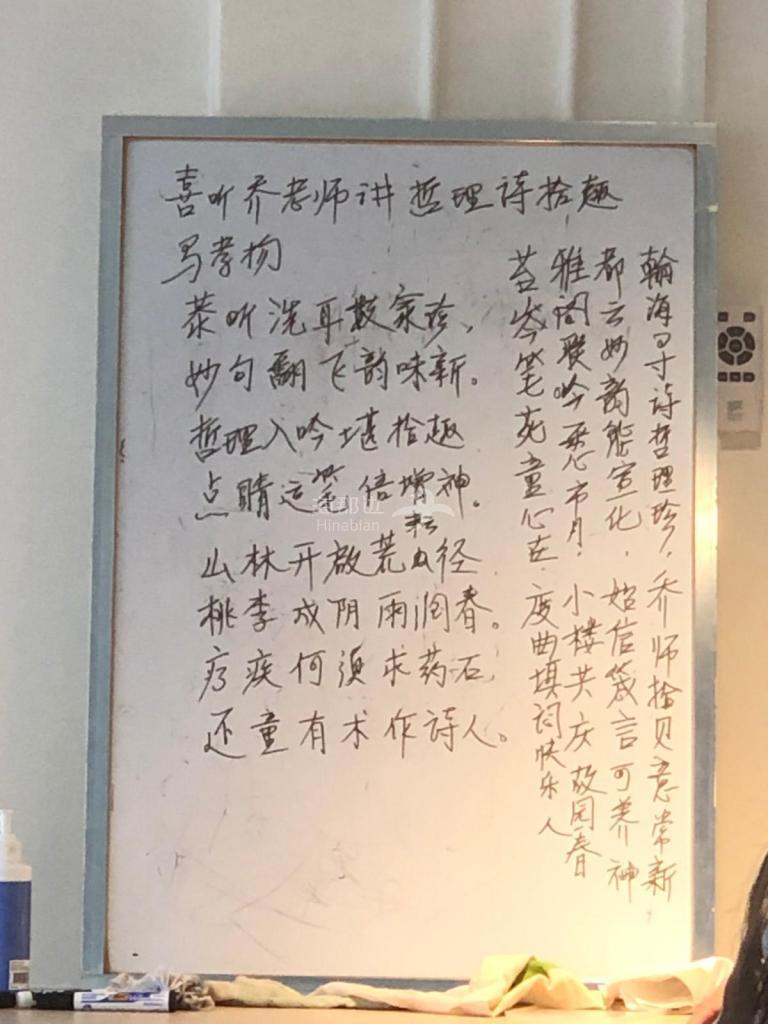 喜听乔老师讲哲理诗拾趣
马孝扬
恭听洗耳散氛珍，
妙句翻飞韵味新。
哲理入吟堪拾趣
点睛运笔倍增神。
山林开放荒芸径
桃李成阴雨润春。
疗疾何须求药石，
还童有术作诗人。
瀚海寻诗哲理珍，乔师拾贝意常新
都云妙韵能宣化，始信箴言可养神
雅阁联吟 市月，小楼共庆故园春
苔岑笔苑童心在 度曲填词快乐人
海那边
Hinabian